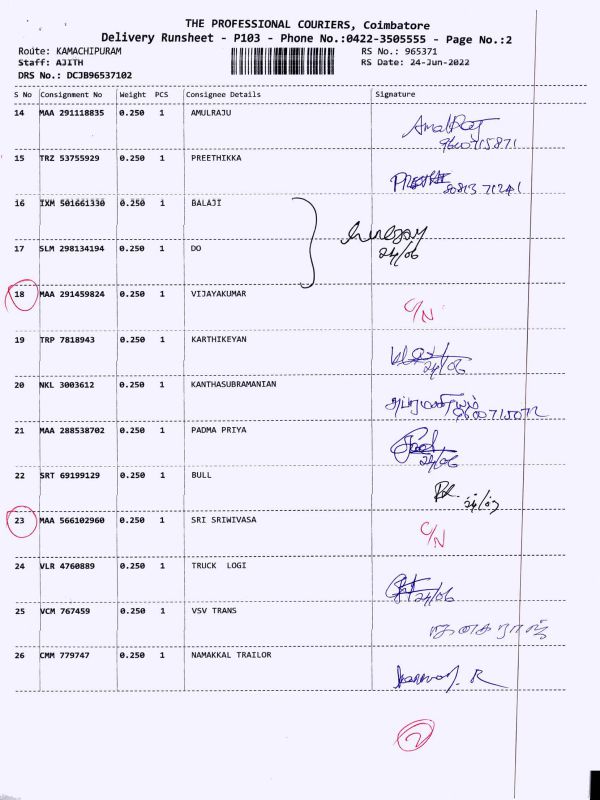 THE PROFESSIONAL COURIERS, Coimbatore
Delivery Runsheet - P103 - Phone No.:0422-3505555 - Page No.:2
Route: KAMACHIPURAM RS No.: 965371
Staff: AJITH RS Date: 24-Jun-2022
DRS No.: DCJB96537102
S No Consignment No Weight PCS Consignee Details Signature
14 MAA 291118835 0.250 1 AMULRAJU
9600715871
15 TRZ 53755929 0.250 1 PREETHIKKA
16 IXM 501661330 0.250 1 BALAJI
17 SLM 298134194 0.250 1 DO
24/06
18 MAA 291459824 0.250 1 VIJAYAKUMAR C/N
19 TRP 7818943 0.250 1 KARTHIKEYAN
24/06
20 NKL 3003612 0.250 1 KANTHASUBRAMANIAN
21 MAA 288538702 0.250 1 PADMA PRIYA
24/06
22 SRT 69199129 0.250 1 BULL
23 MAA 566102960 0.250 1 SRI SRIWIVASA C/N
24 VLR 4760889 0.250 1 TRUCK LOGI
24/06
25 VCM 767459 0.250 1 VSV TRANS
26 CMM 779747 0.250 1 NAMAKKAL TRAILOR
2